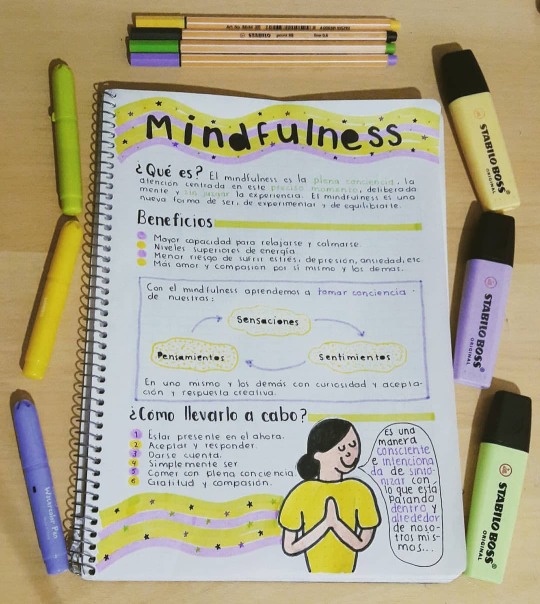 STABILO point 88
Mindfulness
¿Qué es? El mindfulness es la plena conciencia, la
atención centrada en este preciso momento, deliberada
mente y sin juzgar la experiencia. El mindfulness es una
nueva forma de ser, de experimentar y de equilibrarte.
Beneficios
Mayor capacidad para relajarse y calmarse.
Niveles superiores de energía.
Menor riesgo de sufrir estrés, depresión, ansiedad, etc.
Más amor y compasión por sí mismo y los demás.
Con el mindfulness aprendemos a tomar conciencia
de nuestras:
Sensaciones
Pensamientos
Sentimientos
En uno mismo y los demás con curiosidad y acepta-
ción y respuesta creativa.
¿Cómo llevarlo a cabo?
1 Estar presente en el ahora.
2 Aceptar y responder.
3 Darse cuenta.
4 Simplemente ser
5 Comer con plena conciencia
6 Gratitud y compasión.
Es una
manera
consciente
e intenciona
da de sinto
nizar con
lo que está
pasando
dentro y
alrededor
de noso-
tros mis-
mos...
STABILO BOSS
ORIGINAL
STABILO BOSS
ORIGINAL
STABILO BOSS
ORIGINAL
Watercolor Pen